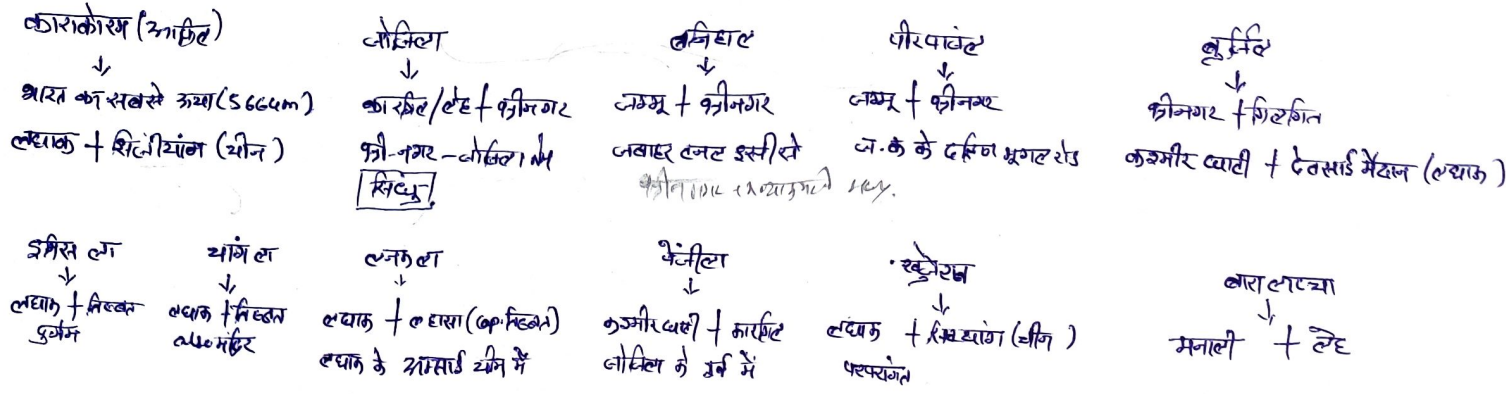 काराकोरम (अाघिल)
↓
भारत का सबसे ऊंचा (5664m)
लद्दाख + शिंजीयांग (चीन)
जोजिला
↓
कारगिल/लेह + श्रीनगर
श्री-नगर - जोजिला
सिन्धु
बनिहाल
↓
जम्मू + श्रीनगर
जवाहर टनल इसी से
पीरपांजल
↓
जम्मू + श्रीनगर
ज.क के दक्षिण मुगल रोड
बुर्जिल
↓
श्रीनगर + गिलगित
कश्मीर घाटी + देवसाई मैदान (लद्दाख)
इमिस ला
↓
लद्दाख + तिब्बत
दुर्गम
चांग ला
↓
लद्दाख + तिब्बत
also मंदिर
लनक ला
↓
लद्दाख + लहासा (cap. तिब्बत)
लद्दाख के अक्साई चीन में
पेंजीला
↓
कश्मीर घाटी + कारगिल
जोजिला के पूर्व में
खुंजेराब
↓
लद्दाख + सिक्यांग (चीन)
परपरांगत
बारालाच्चा
↓
मनाली + लेह